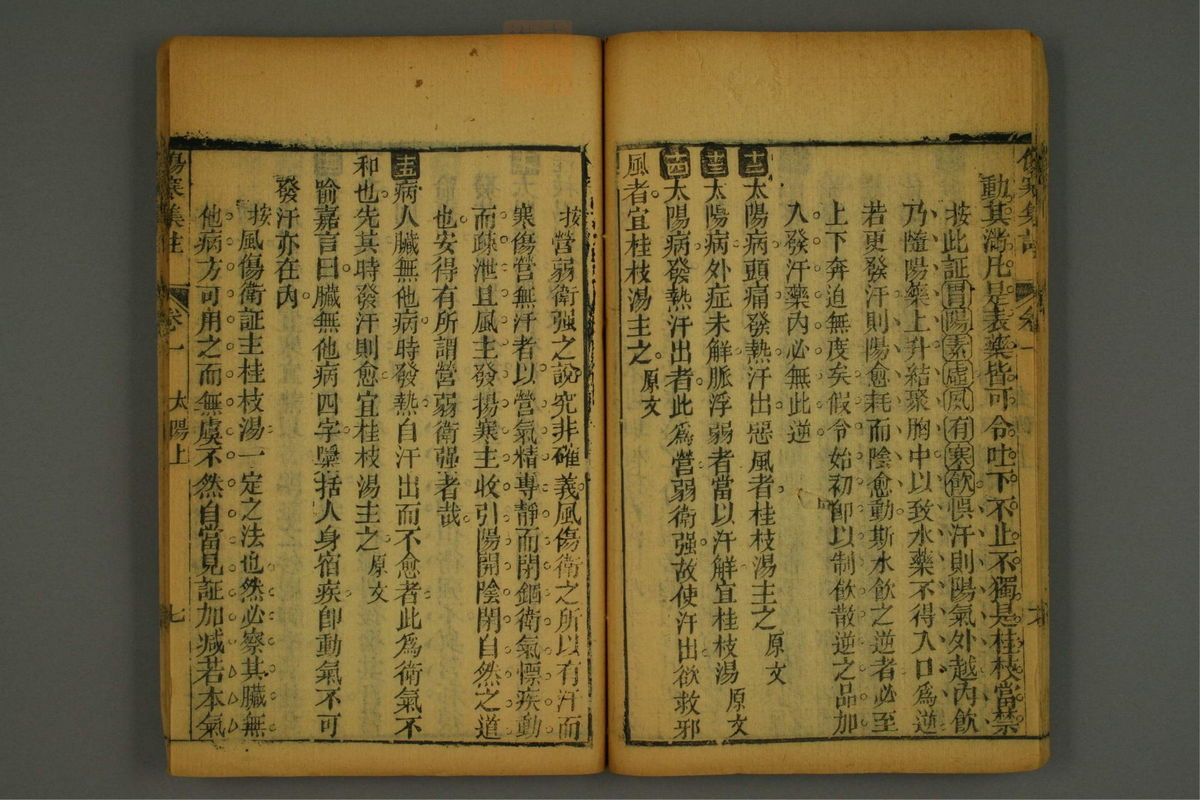 傷寒集註 卷一
動其滿凡是表藥皆可令吐下不止不獨是桂枝當禁
按此証胃陽素虛夙有寒飲悞汗則陽氣外越內飲
乃隨陽藥上升結聚胸中以致水藥不得入口爲逆
若更發汗則陽愈耗而陰愈動斯水飲之逆者必至
上下奔迫無度矣假令始初卽以制飲散逆之品加
入發汗藥內必無此逆
十二 太陽病頭痛發熱汗出惡風者桂枝湯主之 原文
十三 太陽病外症未解脈浮弱者當以汗解宜桂枝湯 原文
十四 太陽病發熱汗出者此爲營弱衛强故使汗出欲救邪
風者宜桂枝湯主之 原文
按營弱衛强之說究非確義風傷衛之所以有汗而
寒傷營無汗者以營氣精專靜而閉錮衛氣慓疾動
而疎泄且風主發揚寒主收引陽開陰閉自然之道
也安得有所謂營弱衛强者哉
十五 病人臟無他病時發熱自汗出而不愈者此爲衛氣不
和也先其時發汗則愈宜桂枝湯主之 原文
喻嘉言曰臟無他病四字櫽括人身宿疾卽動氣不可
發汗亦在內
按風傷衛証主桂枝湯一定之法也然必察其臟無
他病方可用之而無虞不然自當見証加減若本氣
傷寒集註 卷一 太陽上 七